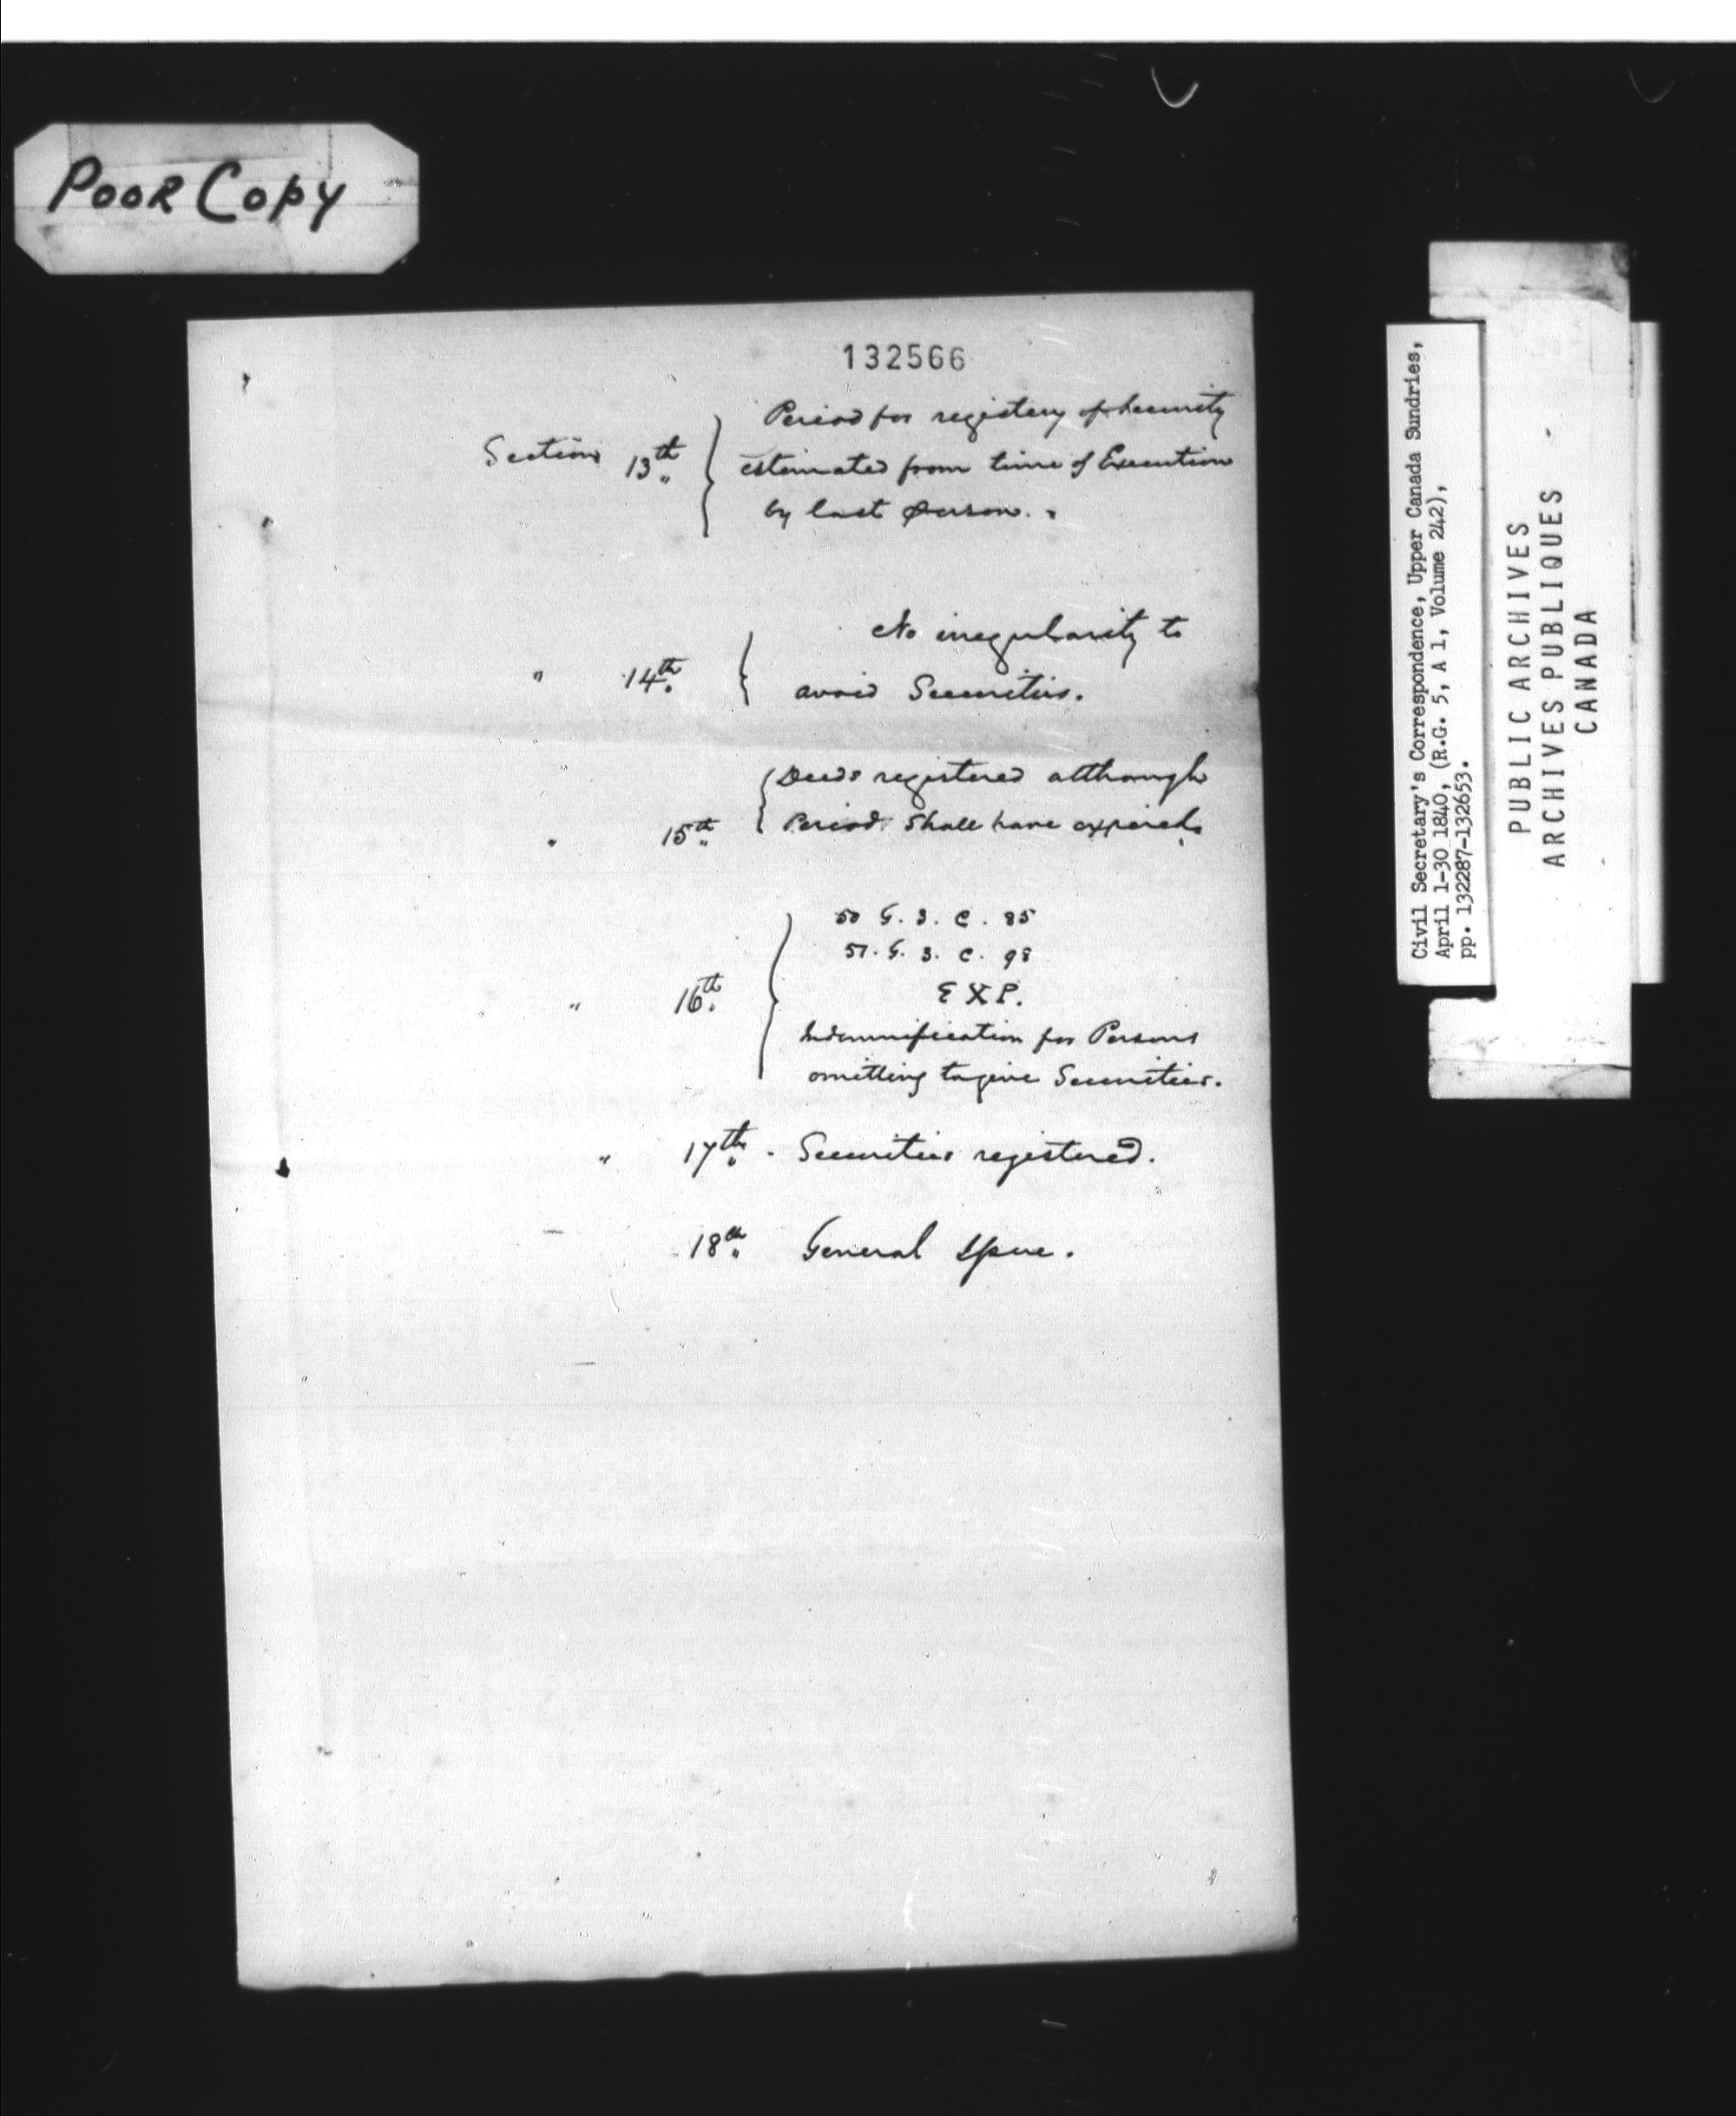 POOR COPY
132566
Section 13th Period for registery of Security
estimated from time of Execution
by last person.
" 14th No irregularity to
avoid Securities.
" 15th Deeds registered although
Period Shall have expired.
" 16th 50 G. 3. C. 85
57. G. 3. C. 98
EXP.
Indemnification for Persons
omitting to give Securities.
" 17th - Securities registered.
18th General Issue.
Civil Secretary's Correspondence, Upper Canada Sundries,
April 1-30 1840, (R.G. 5, A 1, Volume 242),
pp. 132287-132653.
PUBLIC ARCHIVES
ARCHIVES PUBLIQUES
CANADA